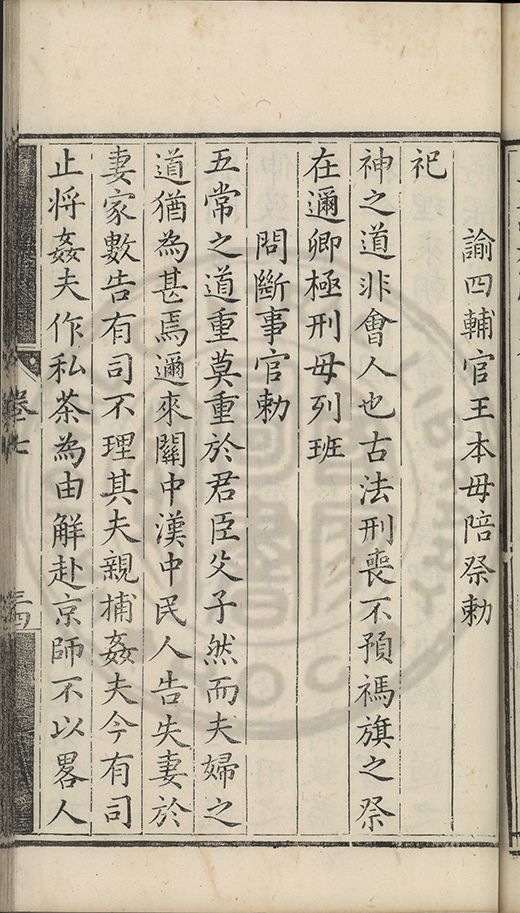 諭四輔官王本毋陪祭勅
祀
神之道非會人也古法刑喪不預禡旗之祭
在邇卿極刑毋列班
問斷事官勅
五常之道重莫重於君臣父子然而夫婦之
道猶為甚焉邇來關中漢中民人告失妻於
妻家數告有司不理其夫親捕姦夫今有司
止將姦夫作私茶為由解赴京師不以畧人
卷七
三四